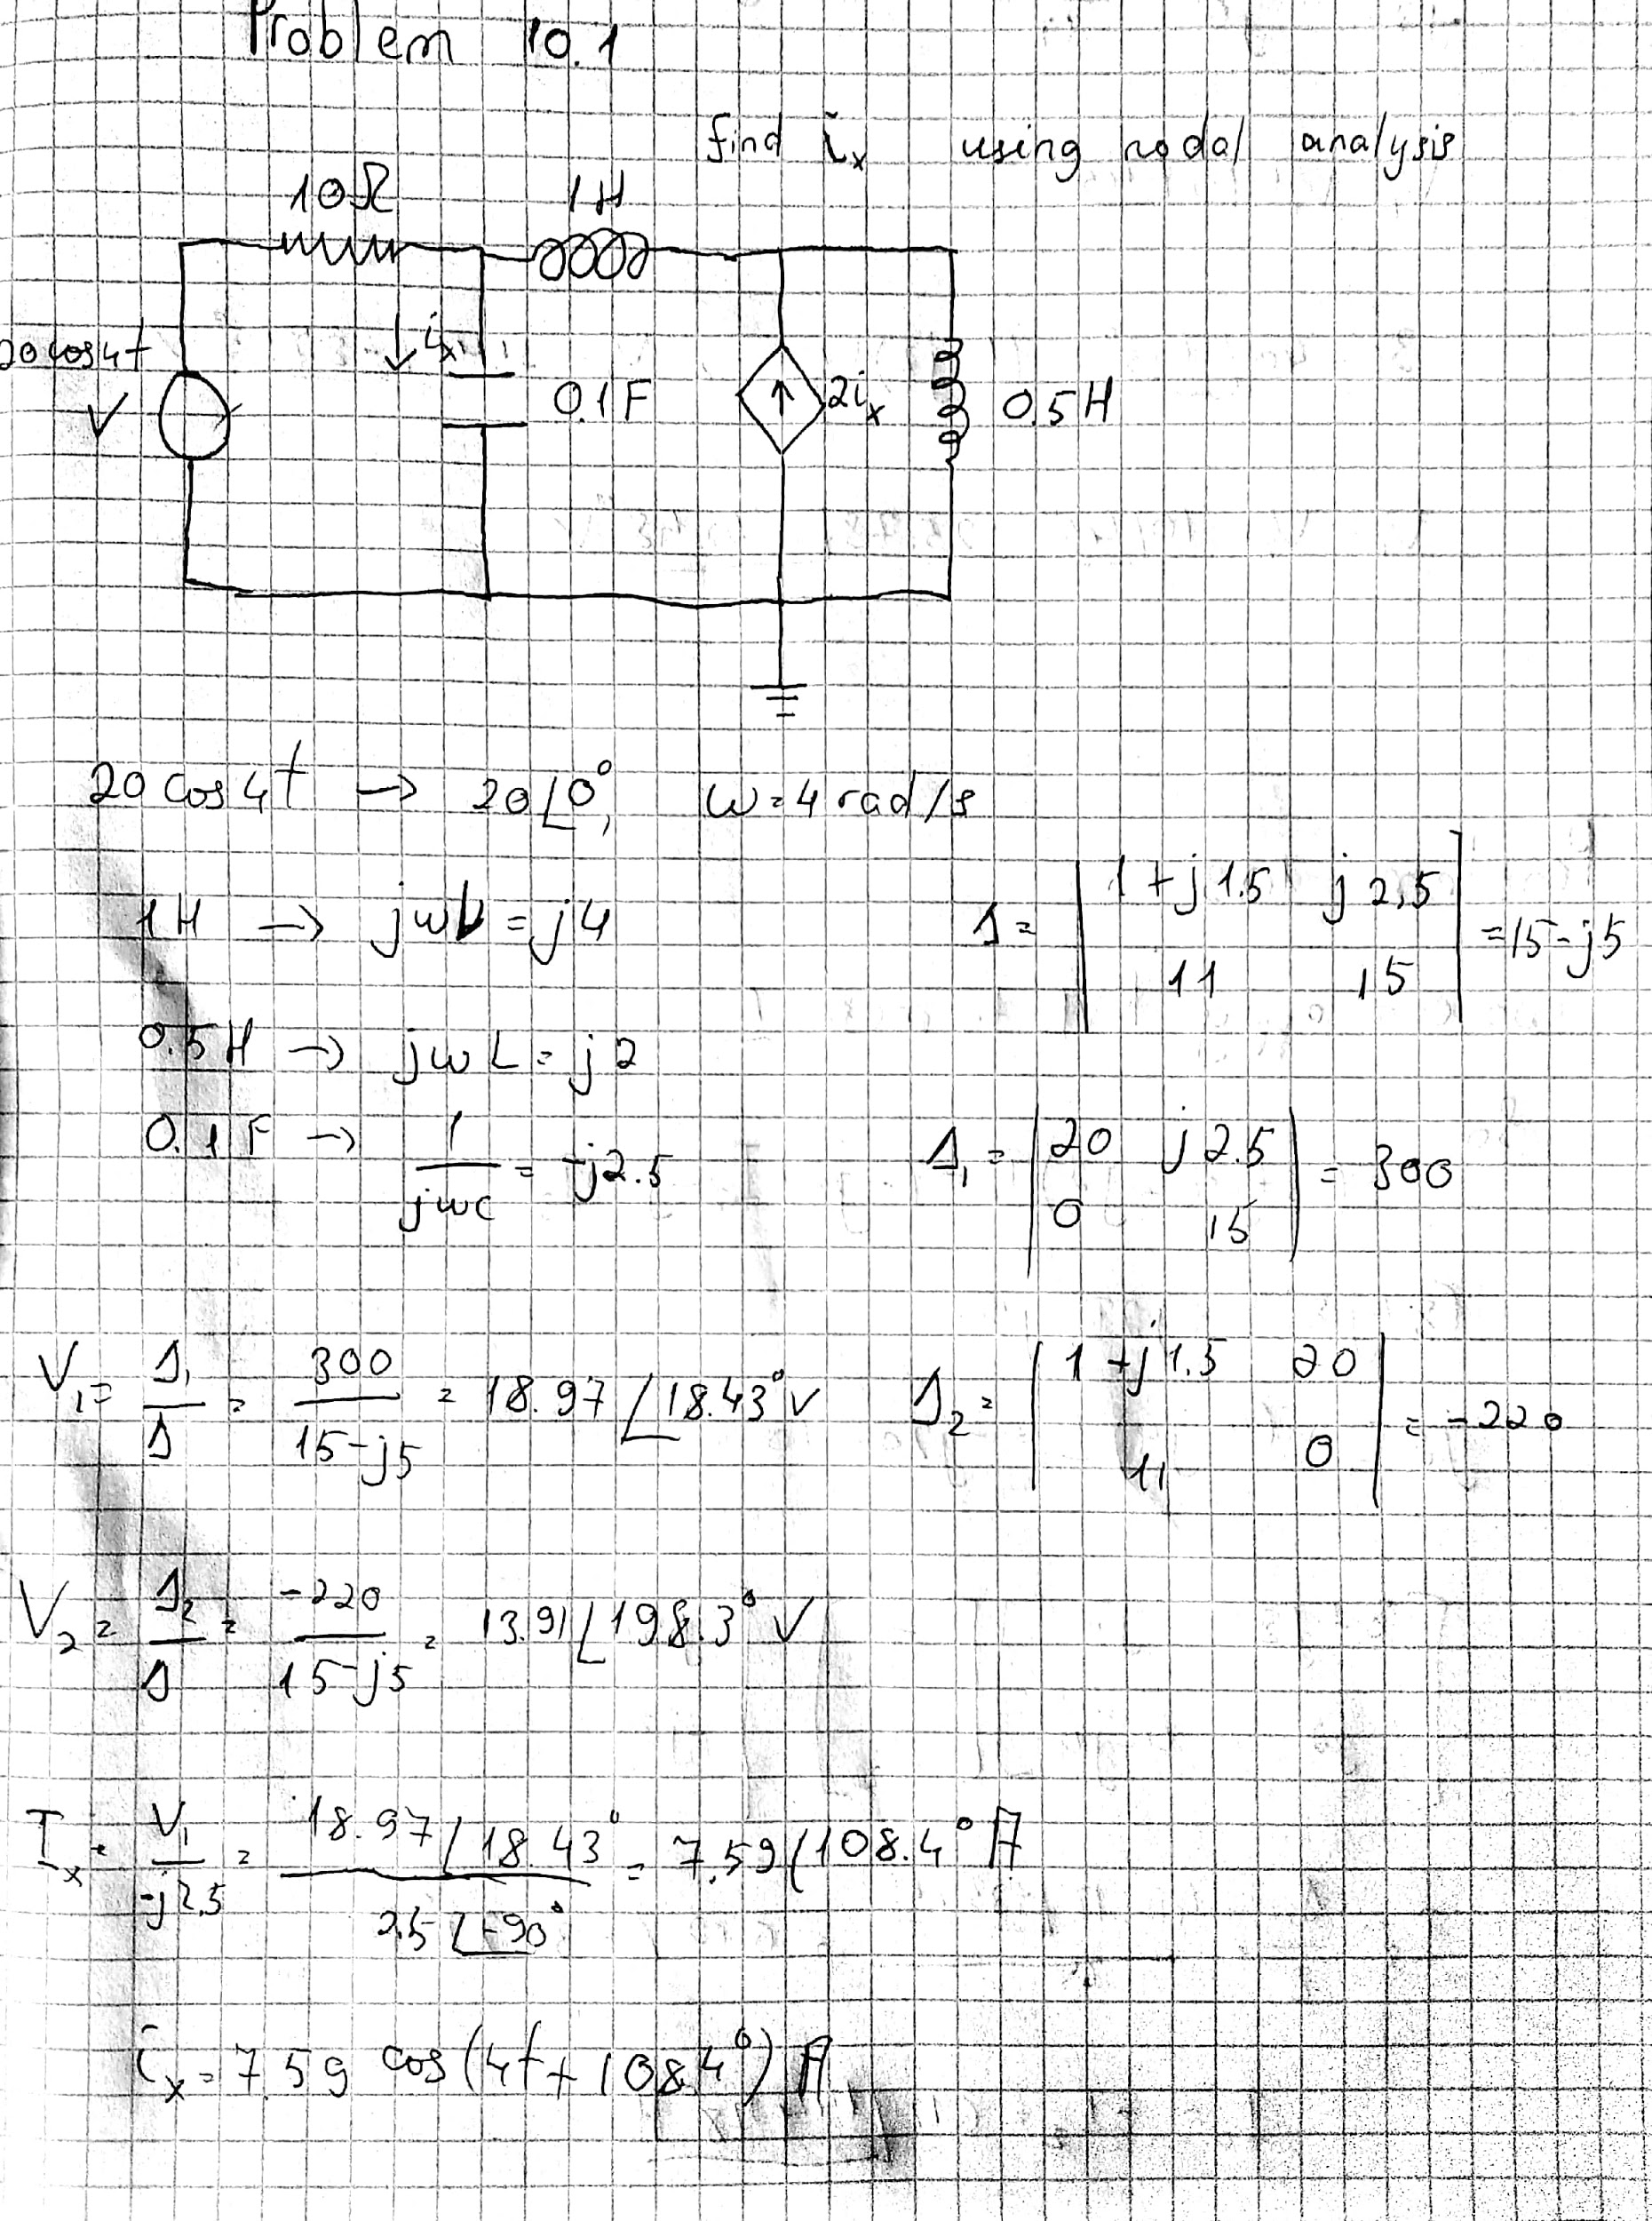 Problem 10.1
find ix using nodal analysis
10Ω 1H
20 cos4t
V
ix
0.1F
2ix
0.5H
20 cos 4t → 20∠0°, ω=4 rad/s
1H → jωL = j4
Δ = | 1+j1.5 j2,5 | = 15-j5
| 11 15 |
0.5H → jωL = j2
0.1F → 1/jωC = -j2.5
Δ1 = | 20 j2.5 | = 300
| 0 15 |
V1 = Δ1/Δ = 300/15-j5 = 18.97∠18.43° V
Δ2 = | 1+j1.5 20 | = -220
| 11 0 |
V2 = Δ2/Δ = -220/15-j5 = 13.91∠198.3° V
Ix = V1/-j2.5 = 18.97∠18.43°/2.5∠-90° = 7.59∠108.4° A
ix = 7.59 cos(4t + 108.4°) A